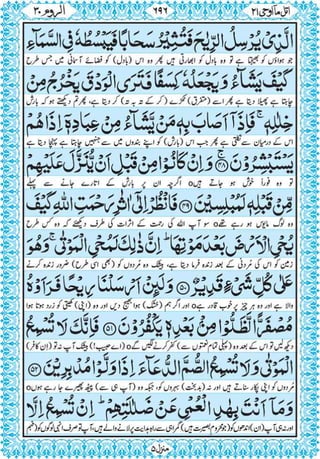 اتل ما اوحی ۲۱ ۶۹۶ الروم ۳۰
الَّذِىْ يُرْسِلُ الرِّيٰحَ فَتُثِيْرُ سَحَابًا فَيَبْسُطُهٗ فِى السَّمَآءِ
جو ہواؤں کو بھیجتا ہے تو وہ بادل کو ابھارتی ہیں پھر وہ اس (بادل) کو فضائے آسمانی میں جس طرح
كَيْفَ يَشَآءُ وَيَجْعَلُهٗ كِسَفًا فَتَرَى الْوَدْقَ يَخْرُجُ مِنْ
چاہتا ہے پھیلا دیتا ہے پھر اسے (متفرق) ٹکڑے (کر کے تہ بہ تہ) کر دیتا ہے، پھر تم دیکھتے ہو کہ بارش
خِلٰلِهٖ ۚ فَاِذَآ اَصَابَ بِهٖ مَنْ يَّشَآءُ مِنْ عِبَادِهٖٓ اِذَا هُمْ
اس کے درمیان سے نکلتی ہے پھر جب اس (بارش) کو اپنے بندوں میں سے جنہیں چاہتا ہے پہنچا دیتا ہے
يَسْتَبْشِرُوْنَ ﴿۴۸﴾ وَاِنْ كَانُوْا مِنْ قَبْلِ اَنْ يُّنَزَّلَ عَلَيْهِمْ
تو وہ فوراً خوش ہو جاتے ہیں o اگرچہ ان پر بارش کے اتارے جانے سے پہلے
مِّنْ قَبْلِهٖ لَمُبْلِسِيْنَ ﴿۴۹﴾ فَانْظُرْ اِلٰٓى اٰثٰرِ رَحْمَتِ اللّٰهِ كَيْفَ
وہ لوگ مایوس ہو رہے تھے o سو آپ اللہ کی رحمت کے اثرات کی طرف دیکھئے کہ وہ کس طرح
يُحْىِ الْاَرْضَ بَعْدَ مَوْتِهَا ؕ اِنَّ ذٰلِكَ لَمُحْىِ الْمَوْتٰى ۚ وَهُوَ
زمین کو اس کی مُردنی کے بعد زندہ فرما دیتا ہے، بیشک وہ مُردوں کو (بھی اسی طرح) ضرور زندہ کرنے
عَلٰى كُلِّ شَىْءٍ قَدِيْرٌ ﴿۵۰﴾ وَلَئِنْ اَرْسَلْنَا رِيْحًا فَرَاَوْهُ
والا ہے اور وہ ہر چیز پر خوب قادر ہے o اور اگر ہم (خشک) ہوا بھیج دیں اور وہ (اپنی) کھیتی کو زرد ہوتا ہوا
مُصْفَرًّا لَّظَلُّوْا مِنْ بَعْدِهٖ يَكْفُرُوْنَ ﴿۵۱﴾ فَاِنَّكَ لَا تُسْمِعُ
دیکھ لیں تو اس کے بعد وہ (پہلی تمام نعمتوں سے) کفر کرنے لگیں گے o (اے حبیب!) بیشک آپ نہ تو (ان کافر)
الْمَوْتٰى وَلَا تُسْمِعُ الصُّمَّ الدُّعَآءَ اِذَا وَلَّوْا مُدْبِرِيْنَ ﴿۵۲﴾
مُردوں کو اپنی پکار سناتے ہیں اور نہ (بدبخت) بہروں کو، جبکہ وہ (آپ ہی سے) پیٹھ پھیرے جا رہے ہوں o
وَمَآ اَنْتَ بِهٰدِ الْعُمْىِ عَنْ ضَلٰلَتِهِمْ ؕ اِنْ تُسْمِعُ اِلَّا
منزل ۵